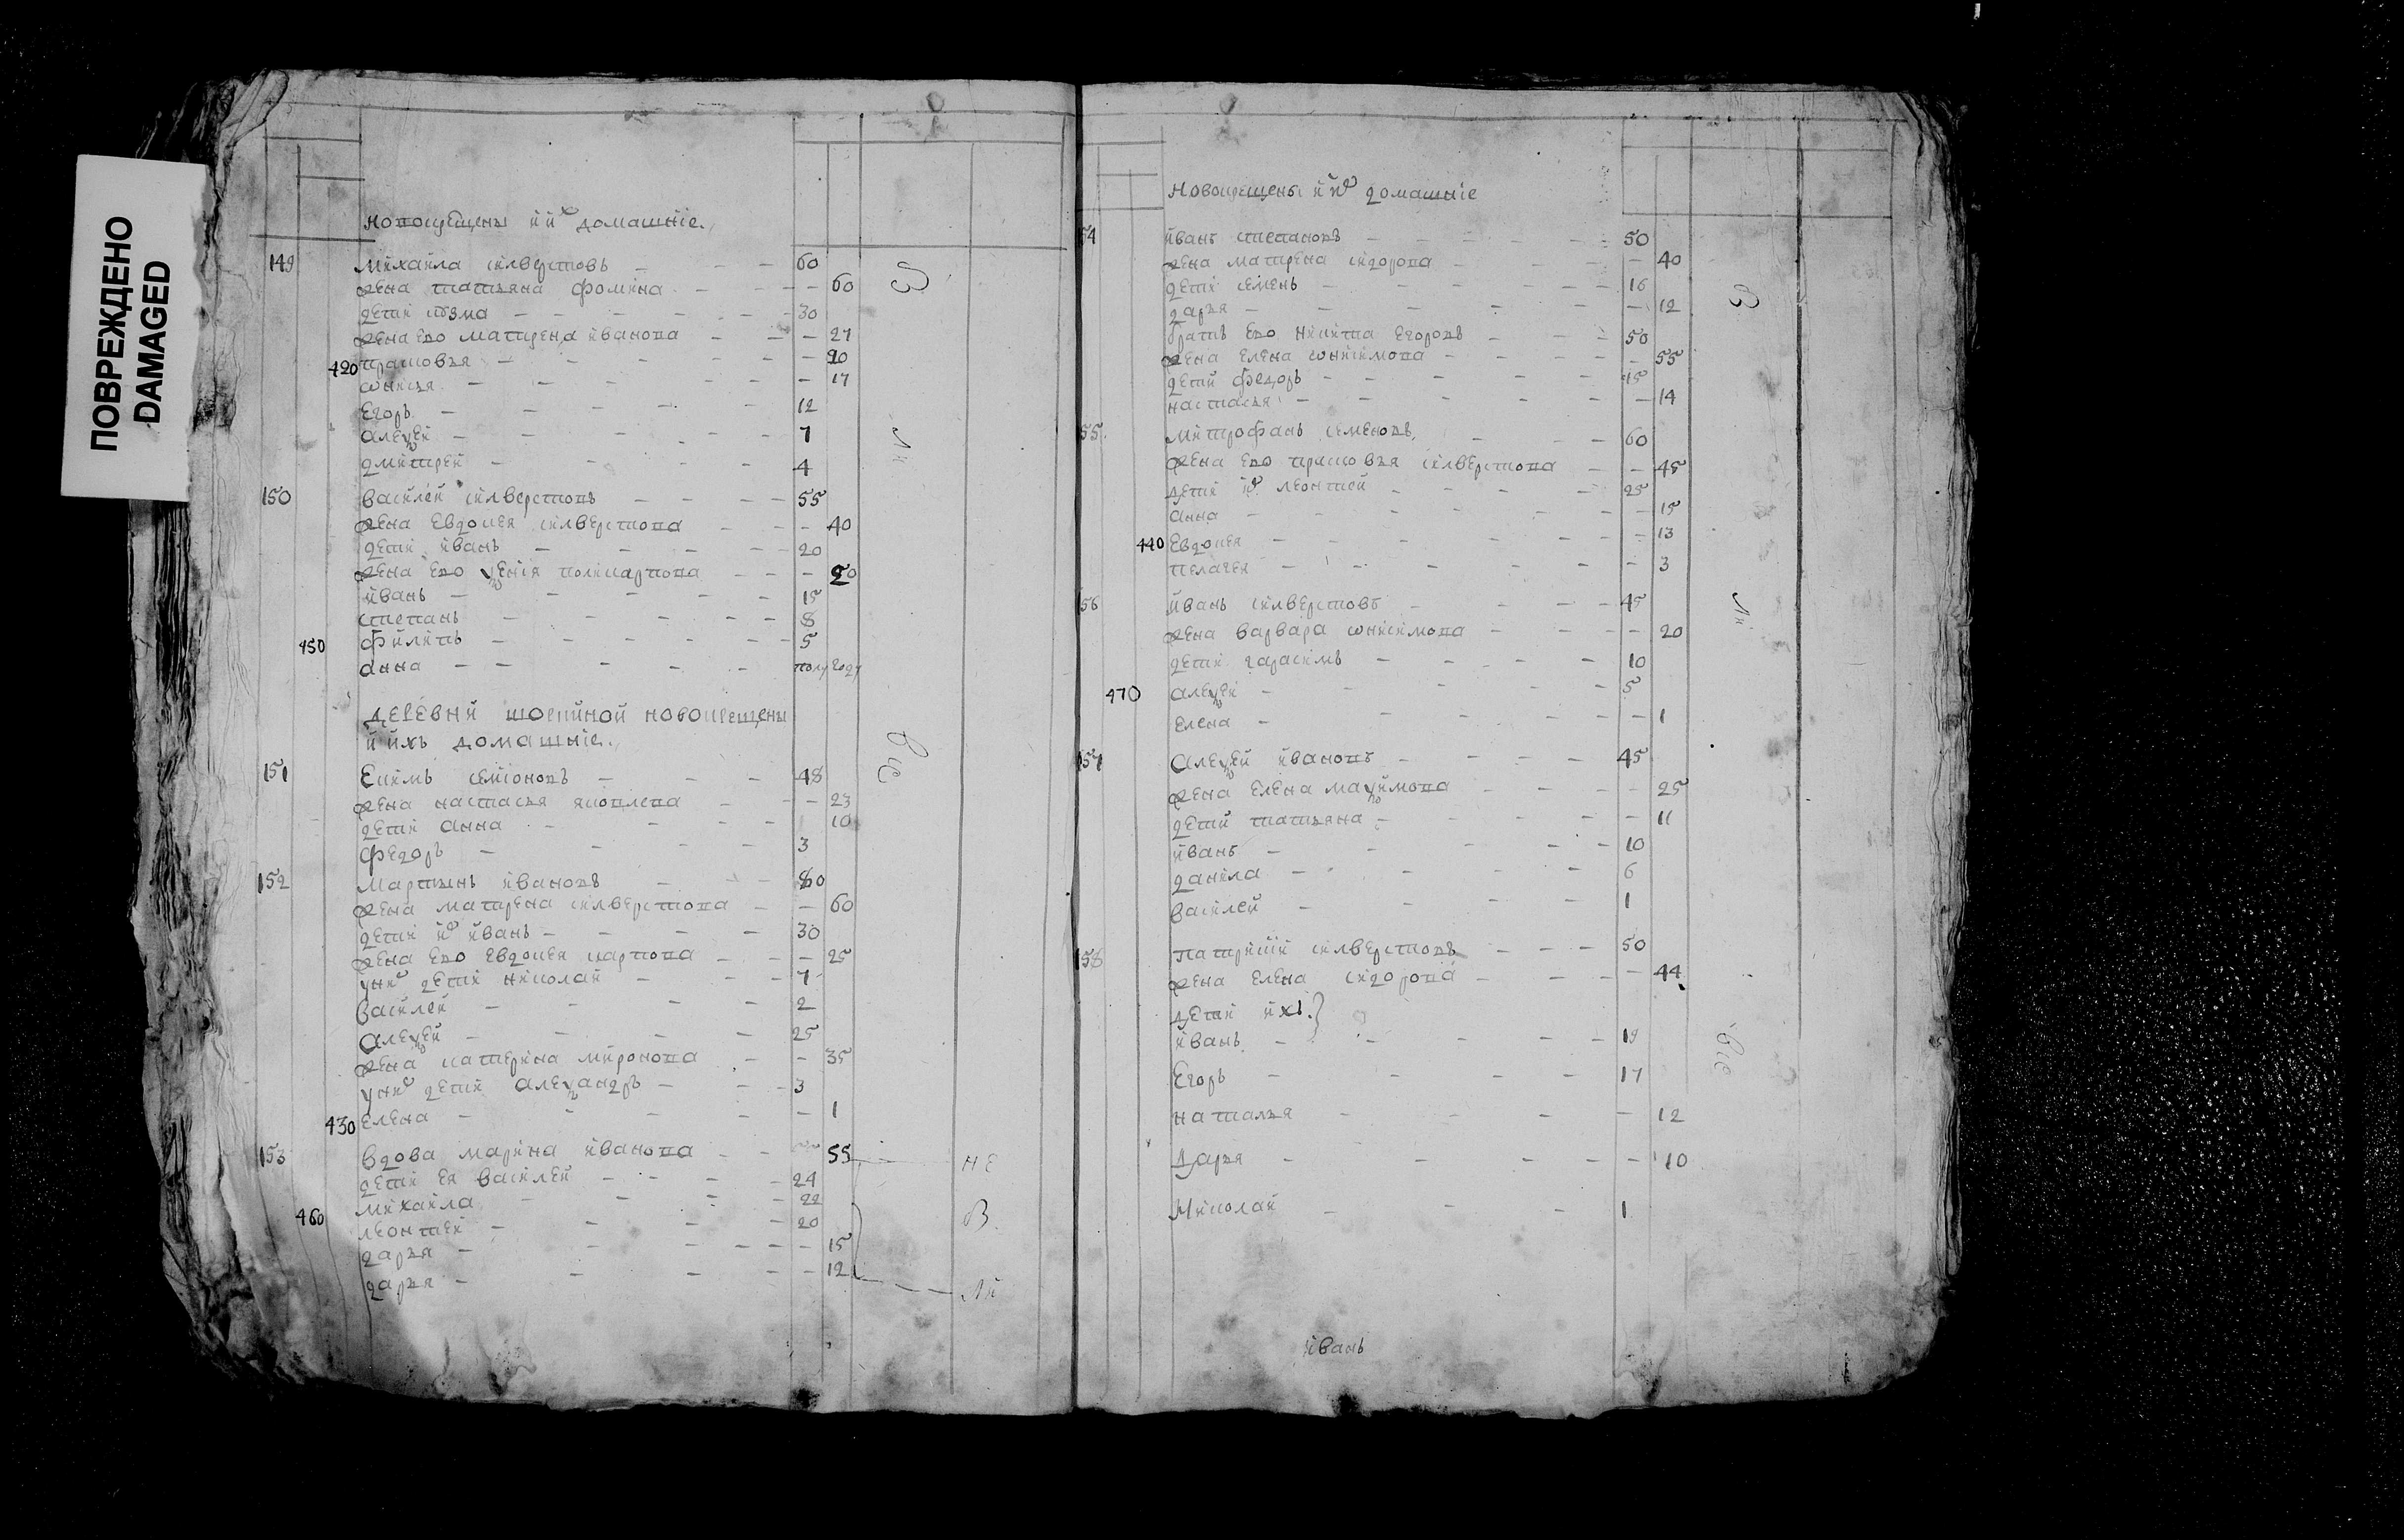 ПОВРЕЖДЕНО
DAMAGED
новокрещены и их домашние.
149 михаила силверстовъ 60
жена татьяна фомина 60
дети кузма 30
жена ево матрена иванова 27
420 прасковья 20
онисья 17
Егоръ 12
алеѯей 7
дмитрей 4
150 василей силверстовъ 55
жена Евдокея силверстова 40
дети иванъ 20
жена ево поликарпова 20
иванъ 15
степанъ 8
450 филипъ 5
анна полугоду
деревни новокрещены
и ихъ домашние.
151 Екимъ семионовъ 48
жена настасья яковлева 23
дети анна 10
федоръ 3
152 мартынъ ивановъ 60
жена матрена силверстова 60
дети их иванъ 30
жена ево Евдокея карпова 25
у них дети николай 7
василей 2
алеѯей 25
жена катерина миронова 35
у них дети алеѯандръ 3
430 Елена 1
153 вдова марина иванова 55 не
дети ея василей 24
михаила 22
460 леонтей 20 В
дарья 15
дарья 12 ли
новокрещены и их домашние
54 иванъ степановъ 50
жена матрена сидорова 40
дети семенъ 16
дарья 12
братъ ево никита Егоровъ 50
жена Елена онисимова 55
дети федоръ 15
настасья 14
55 митрофанъ семеновъ 60
жена ево прасковья силверстова 45
дети их леонтей 25
анна 15
440 Евдокея 13
пелагея 3
56 иванъ силверстовъ 45
жена варвара онисимова 20
дети гарасимъ 10
470 алеѯей 5
Елена 1
157 алеѯей ивановъ 45
жена Елена маѯимова 25
дети татьяна 11
иванъ 10
данила 6
василей 1
158 силверстовъ 50
жена Елена сидорова 44
дети ихъ
иванъ 19
Егоръ 17
наталья 12
дарья 10
николай 1
иванъ